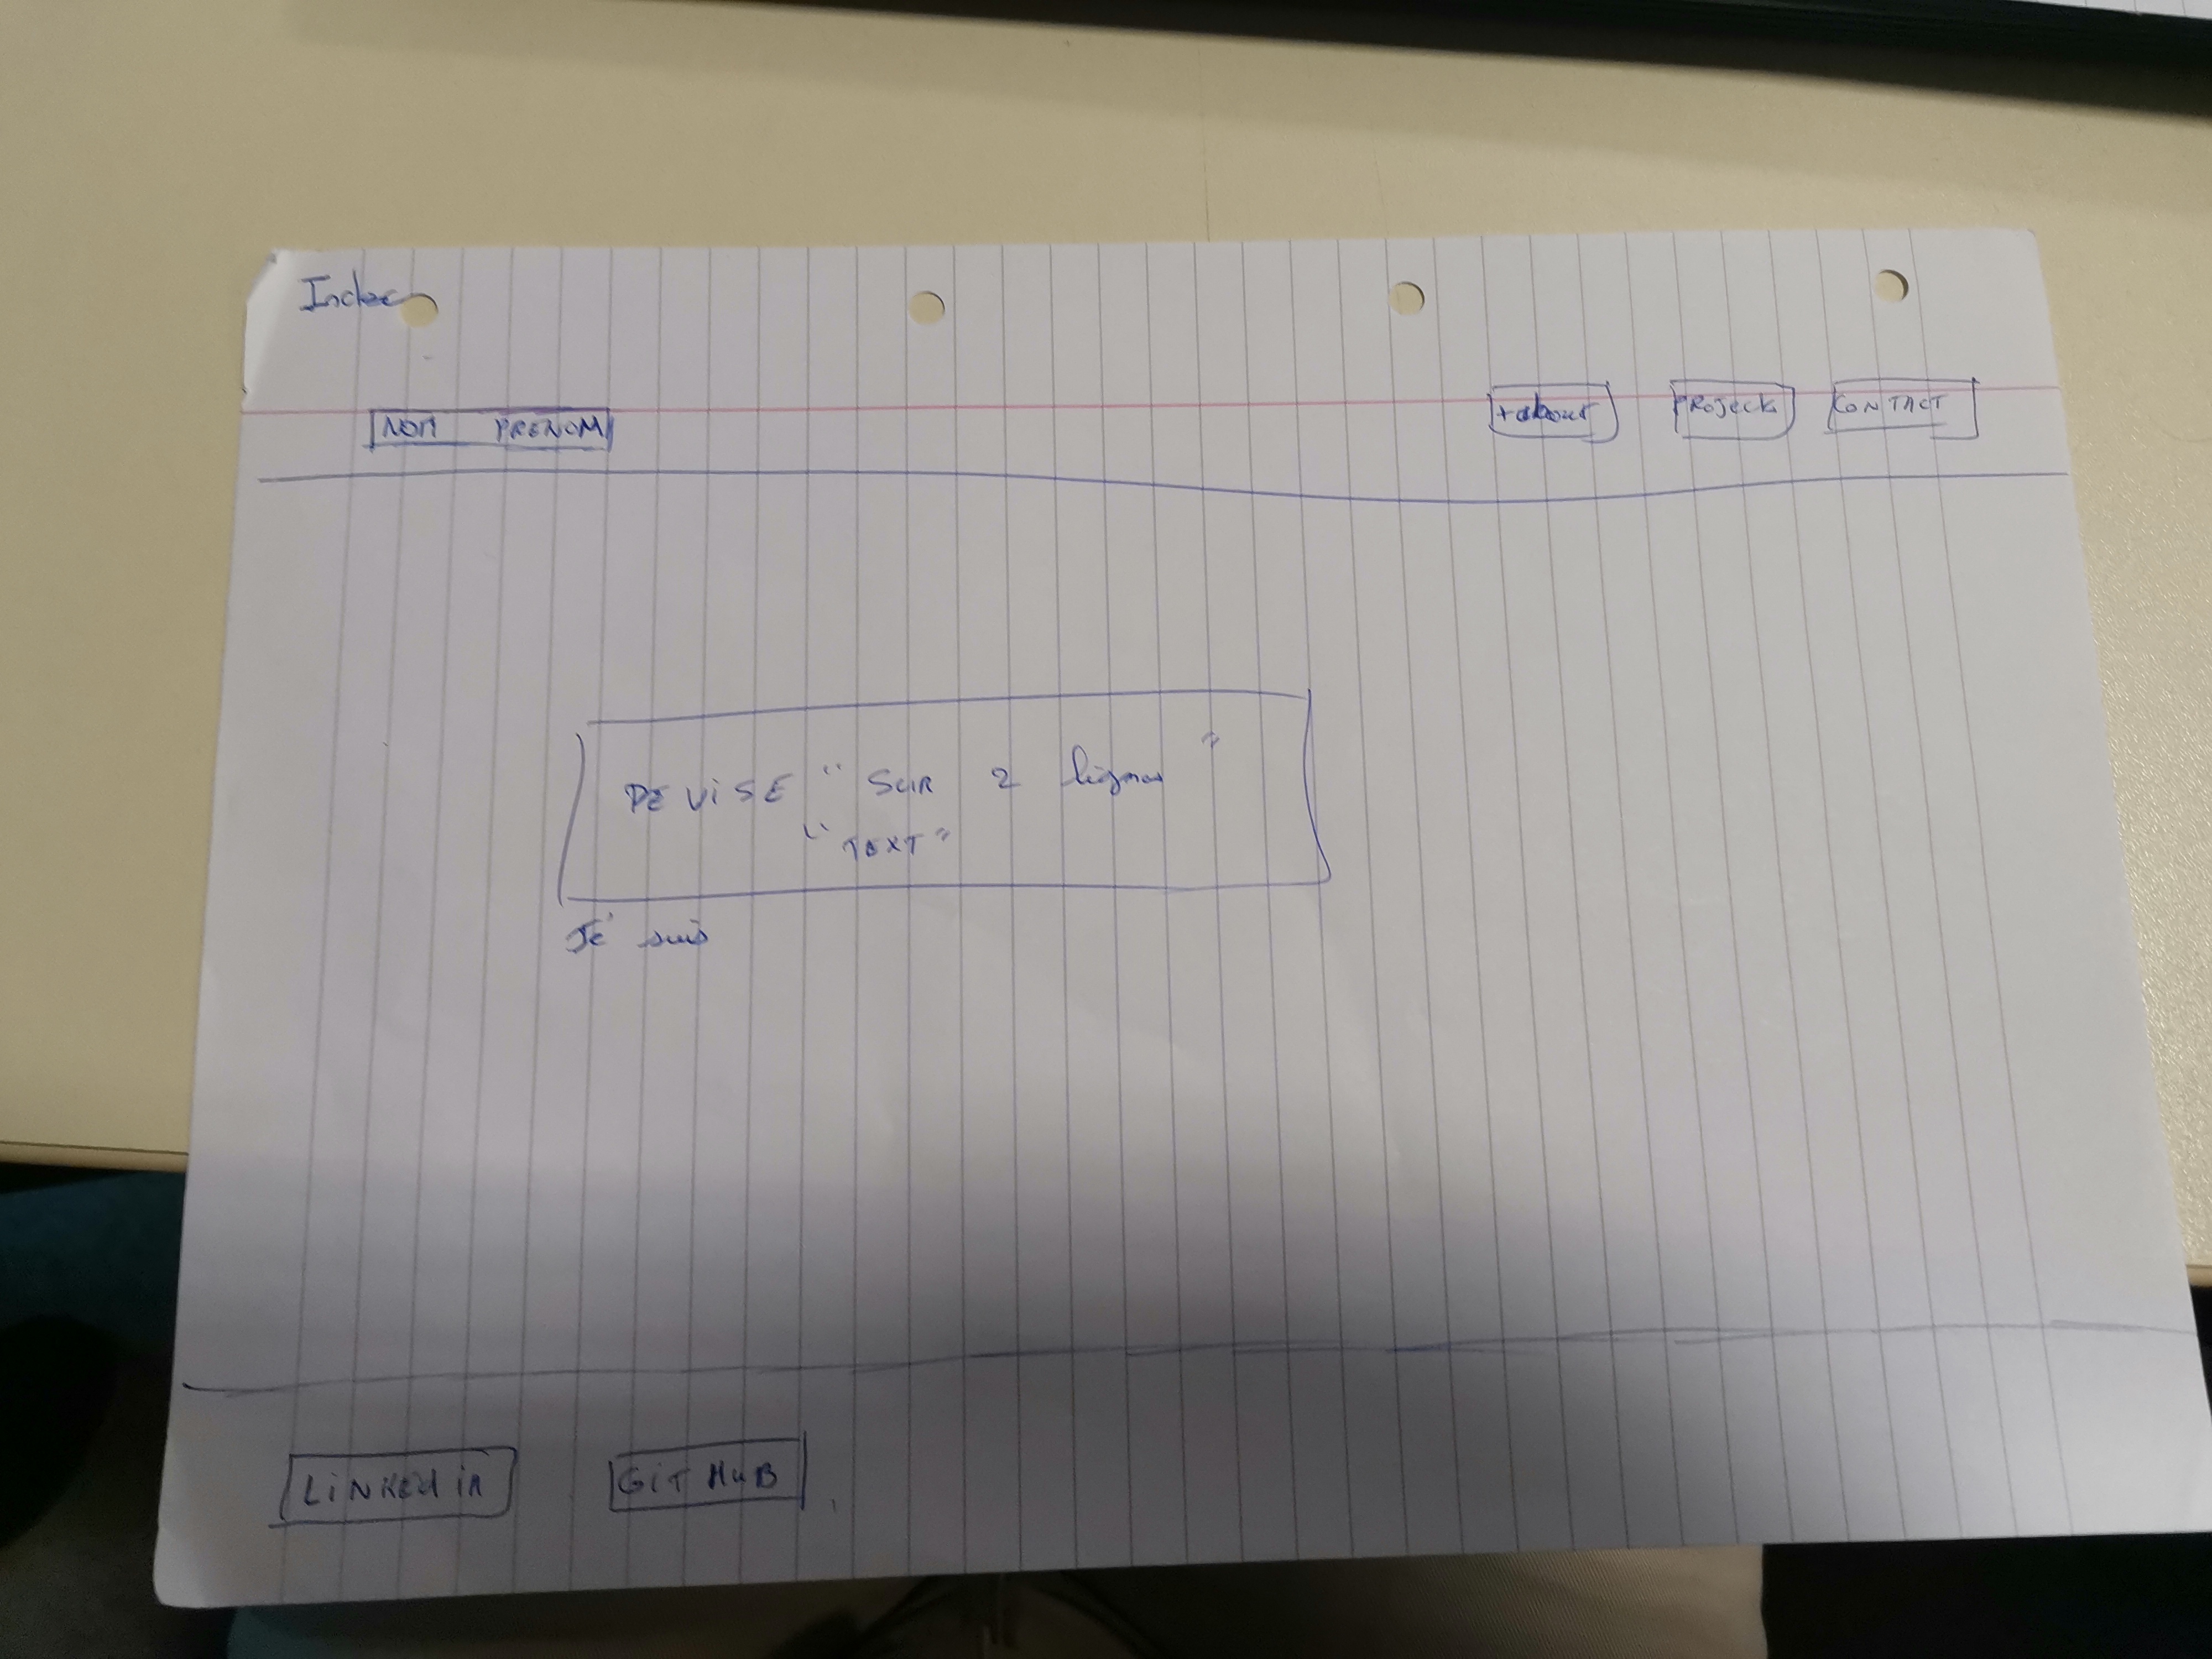 Index
NOM PRENOM
+about
PROJECTS
CONTACT
DEVISE "SUR 2 lignes"
"TEXT"
Je suis
LiNKEd in
GiT HuB